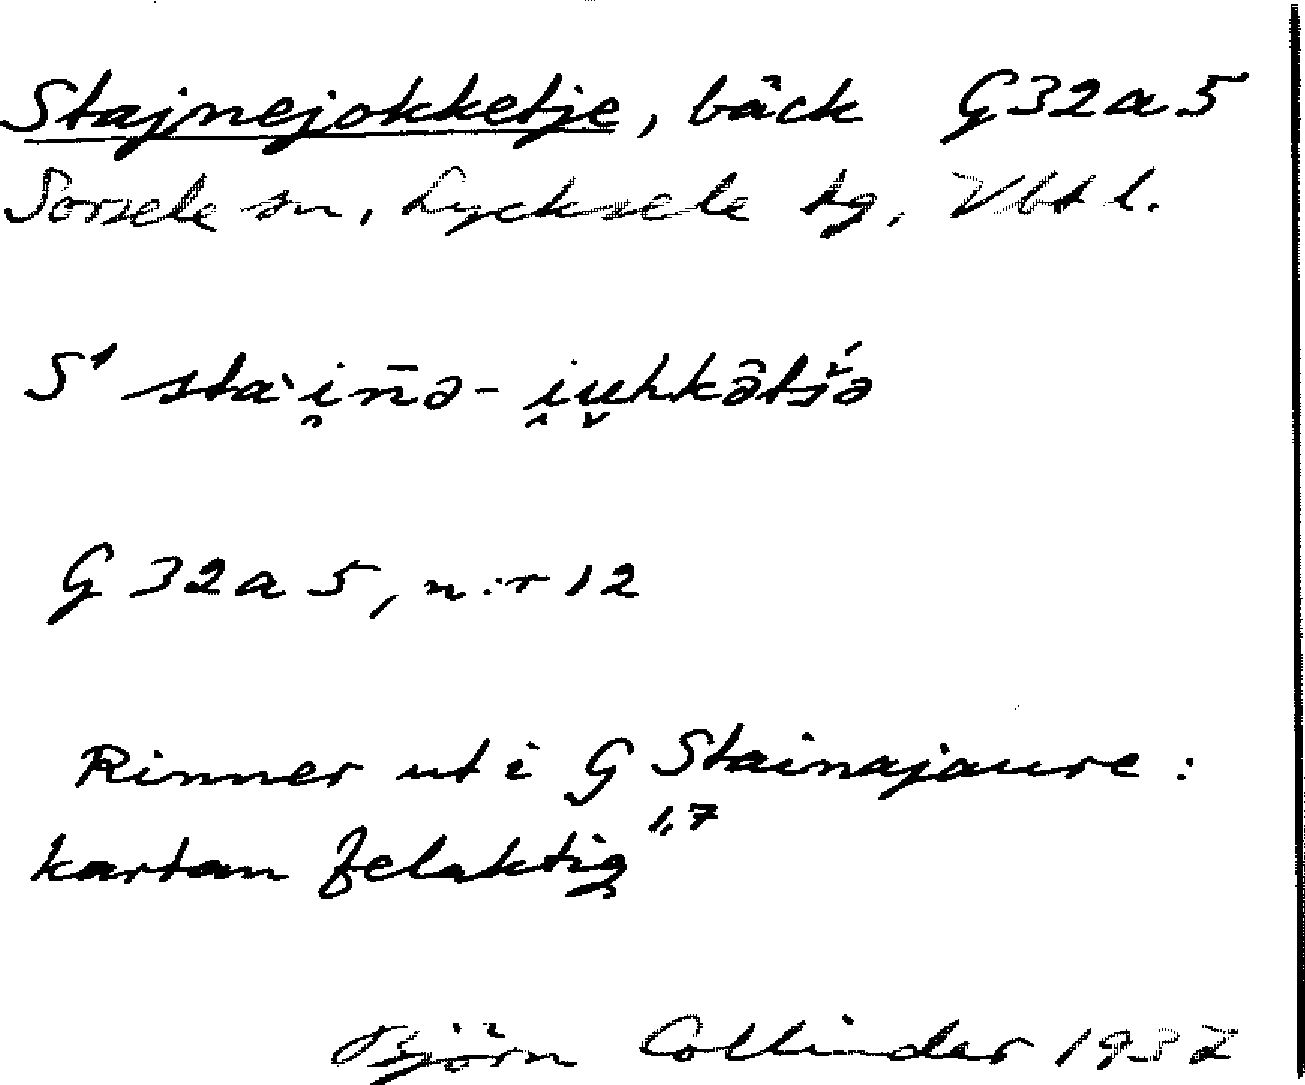 Stajnejokketje, bäck G32a5
Sorsele sn, Lycksele tg, Vbt l.
S¹ stài̯n̄ə-i̯u̬hkə̂tš́ə
G 32a 5, n:r 12
Rinner ut i G Stainajaure:
kartan felaktig 1,7
Björn Collinder 1932